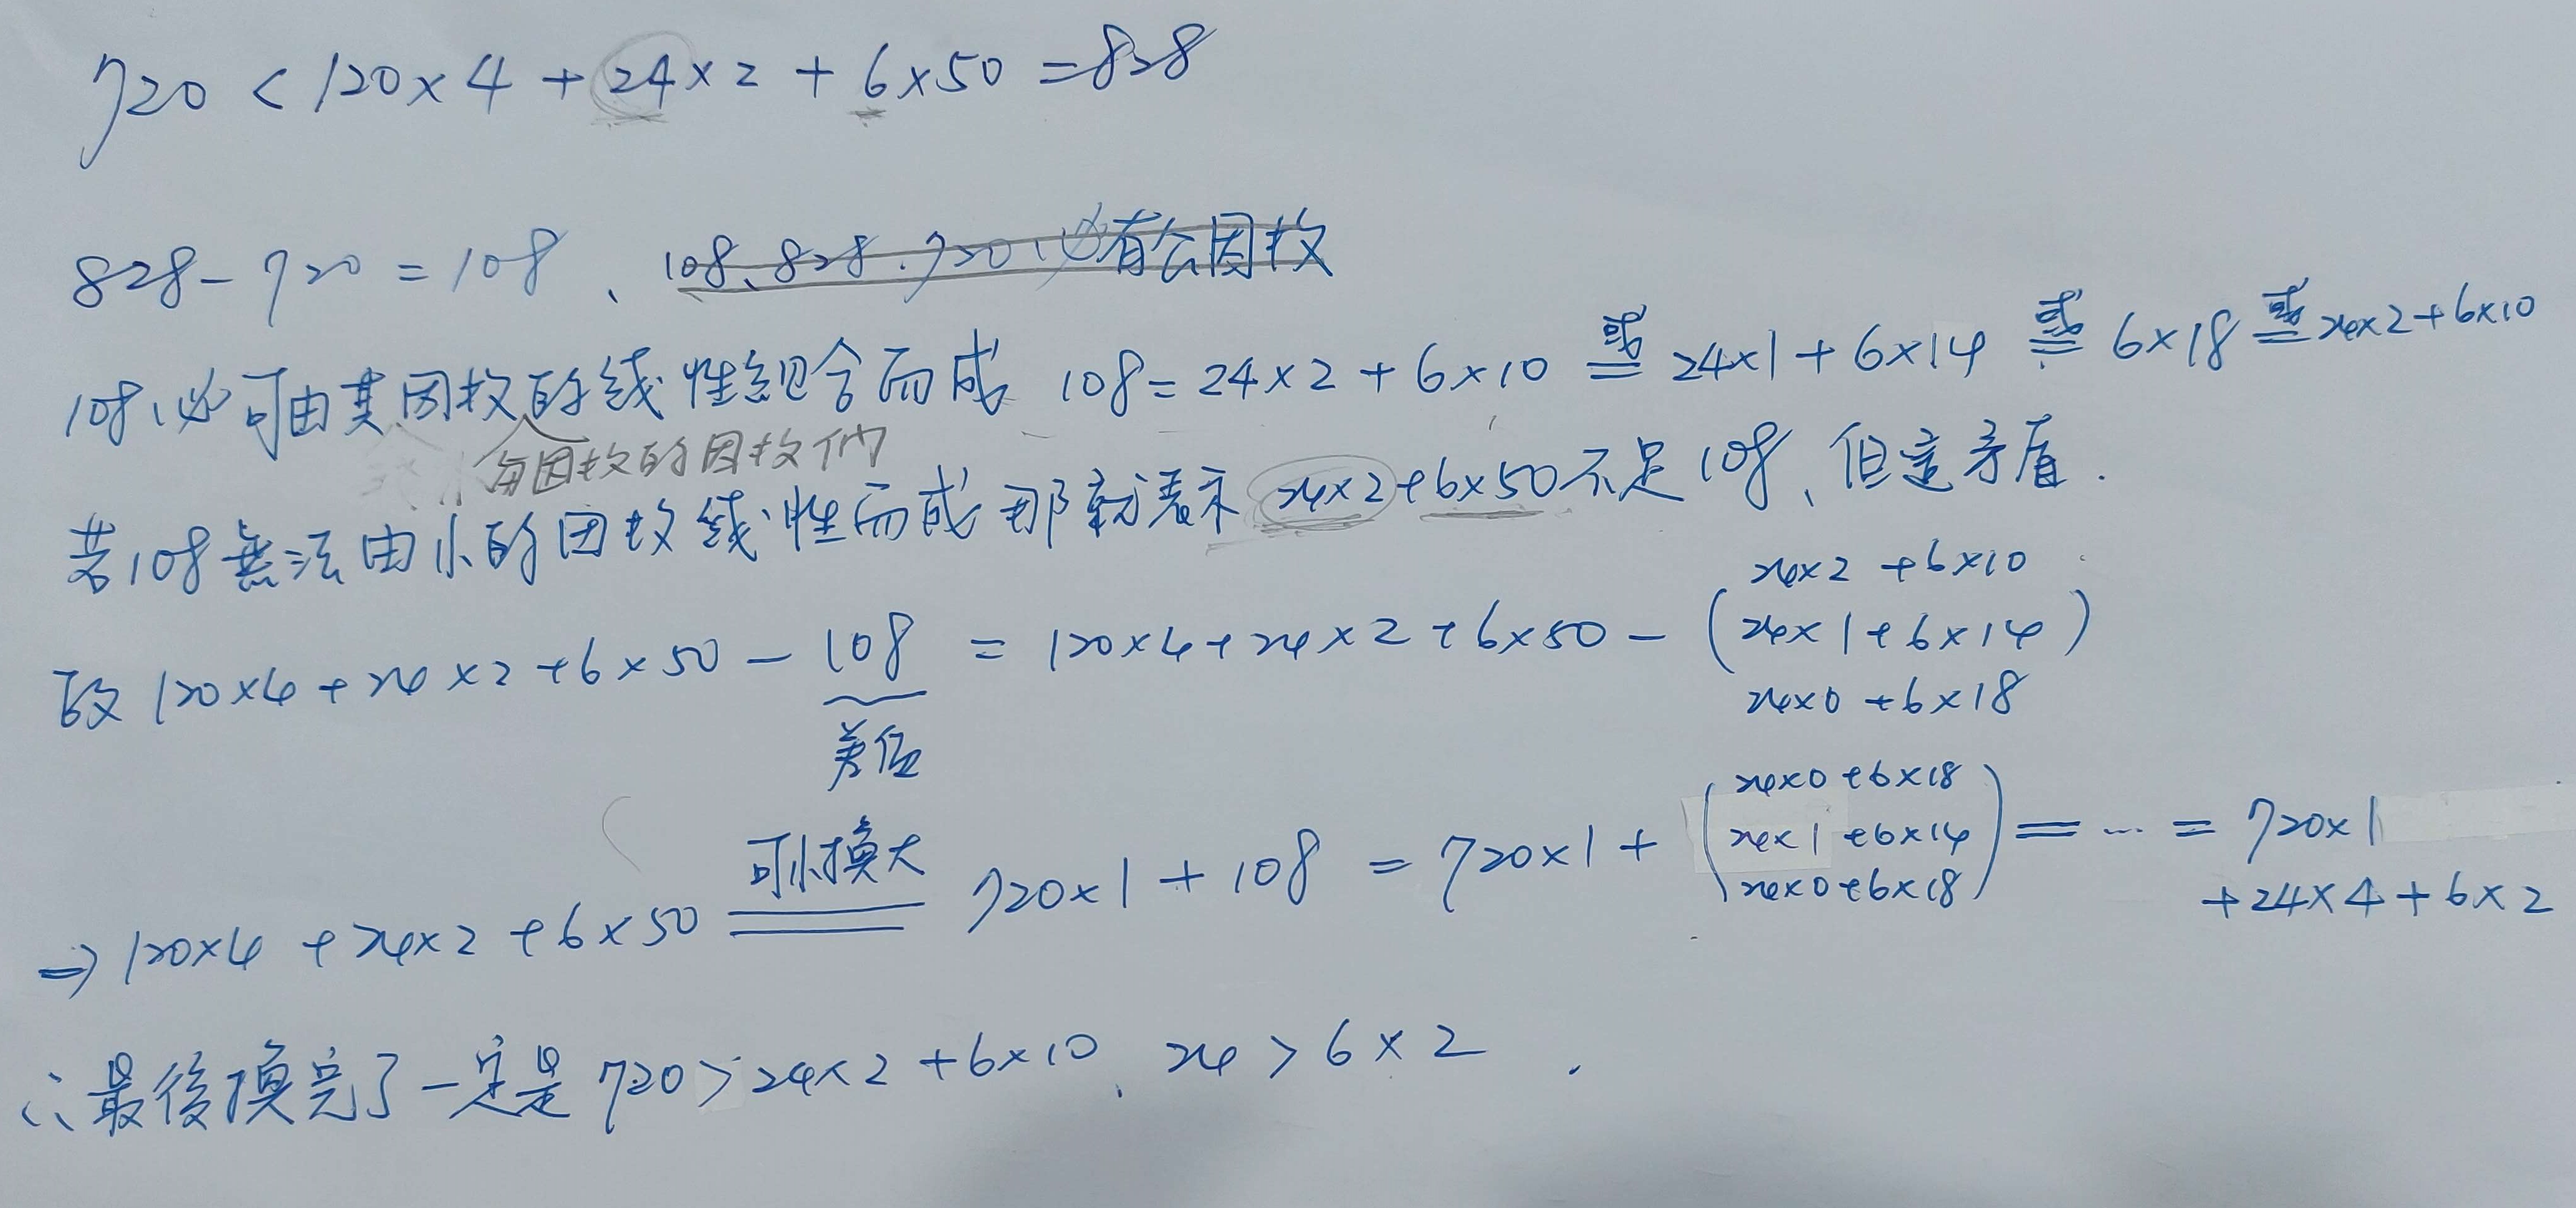 720 < 120×4 + 24×2 + 6×50 = 828
828 - 720 = 108、108、828、720必有公因数
108必可由其因数的线性組合而成 108 = 24×2 + 6×10 或= 24×1 + 6×14 或= 6×18 或= 24×2+6×10
与因数的因数們
若108無法由小的因数线性而成 那就表示 24×2+6×50不足108、但這矛盾.
故 120×4 + 24×2 + 6×50 - 108 = 120×4 + 24×2 + 6×50 - (
24×2 + 6×10
24×1 + 6×14 )
24×0 + 6×18
差值
⇒ 120×4 + 24×2 + 6×50 可小換大 = 720×1 + 108 = 720×1 + (
24×0 + 6×18
24×1 + 6×14
24×0 + 6×18
) = ... = 720×1
+ 24×4 + 6×2
∴最後換完了一定是 720 > 24×2 + 6×10、24 > 6×2 .